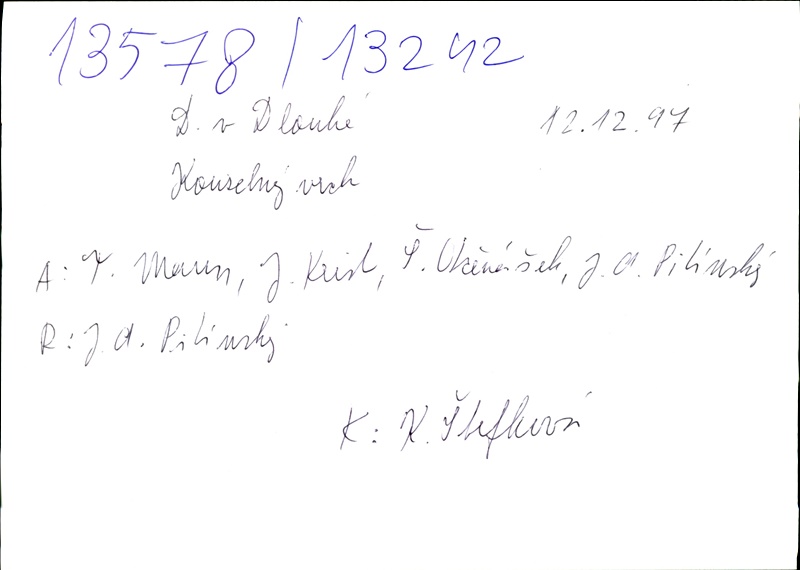 13578 / 13242
D. v Dlouhé 12.12.97
Kouzelný vrch
A: T. Mann, J. Krist, Š. Otčenášek, J. A. Pitínský
R: J. A. Pitínský
K: K. Štefková